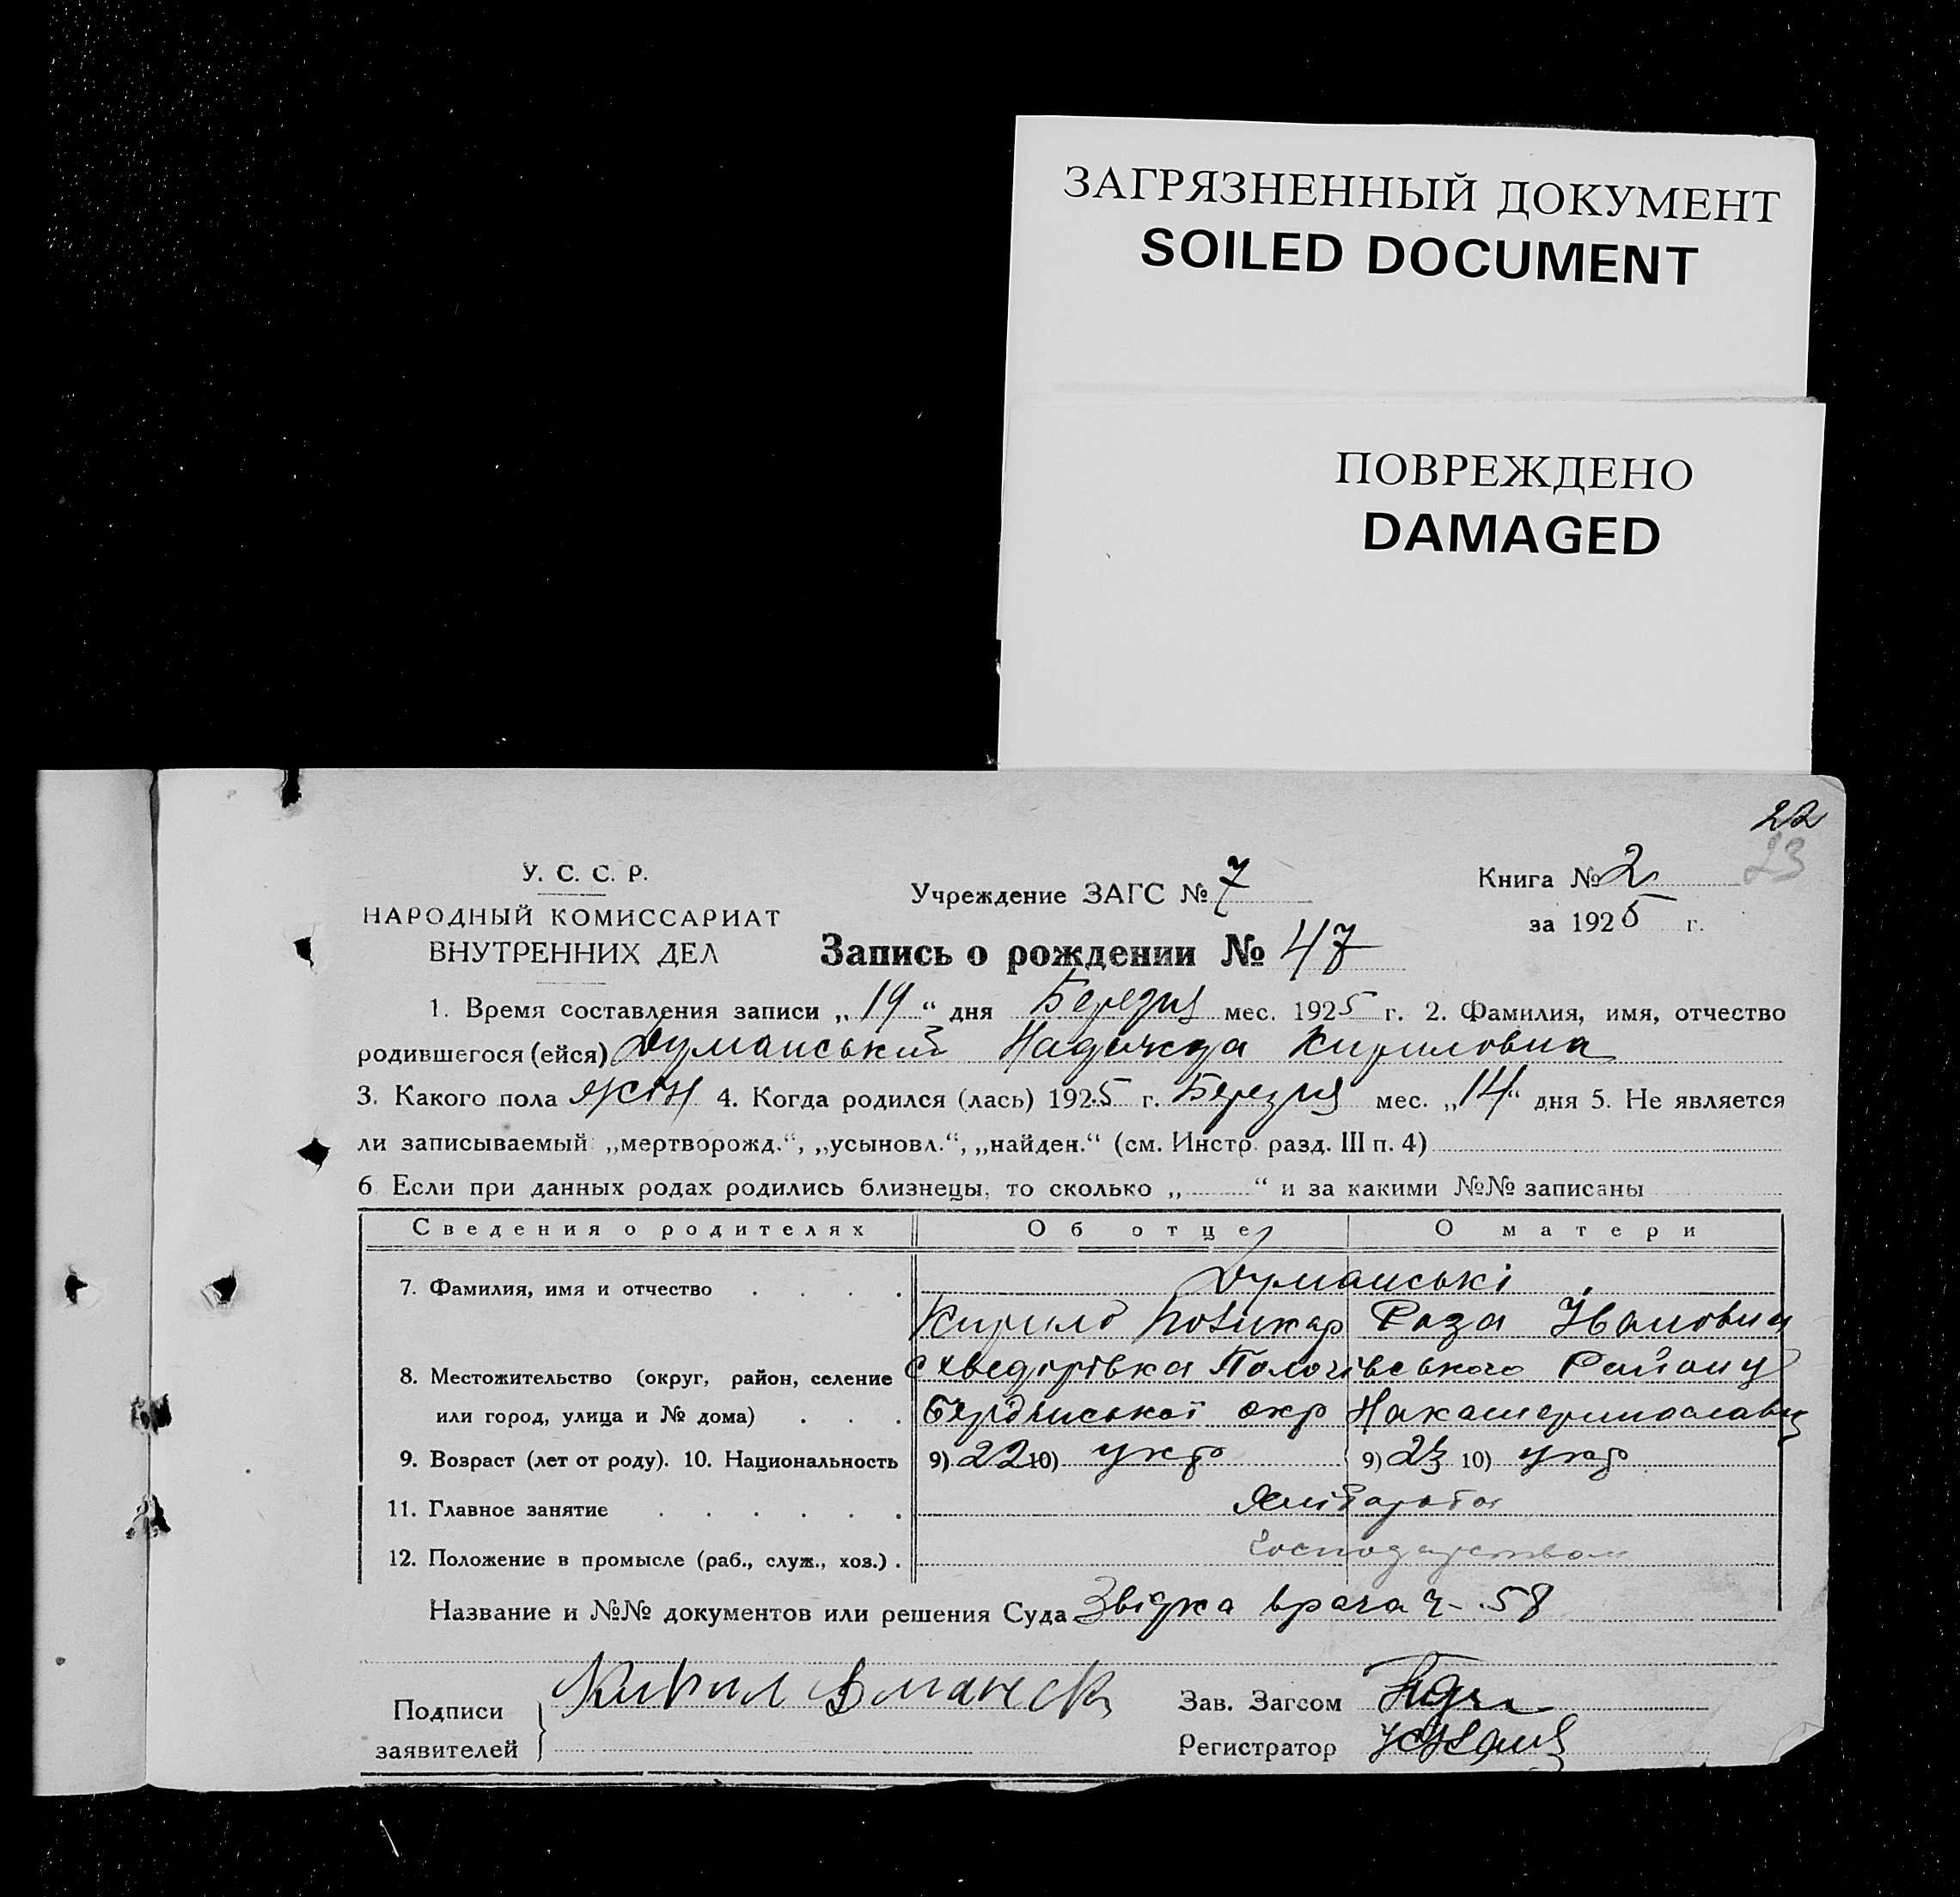 ЗАГРЯЗНЕННЫЙ ДОКУМЕНТ
SOILED DOCUMENT
ПОВРЕЖДЕНО
DAMAGED
22
23
У. С. С. Р.
НАРОДНЫЙ КОМИССАРИАТ
ВНУТРЕННИХ ДЕЛ
Учреждение ЗАГС № 7
Книга № 2
за 1925 г.
Запись о рождении № 47
1. Время составления записи „19“ дня Березня мес. 1925 г. 2. Фамилия, имя, отчество
родившегося (ейся) Думанський Надежда Кириловна
3. Какого пола жін 4. Когда родился (лась) 1925 г. Березня мес. „14“ дня 5. Не является
ли записываемый „мертворожд.“, „усыновл.“, „найден.“ (см. Инстр. разд. III п. 4)
6 Если при данных родах родились близнецы, то сколько „ “ и за какими №№ записаны
Сведения о родителях Об отце О матери
7. Фамилия, имя и отчество . . . . Думанські
Кирило Раза Ивановна
8. Местожительство (округ, район, селение с Хведорівка Пологівського Району
или город, улица и № дома) . . . Бердянської окр На Катеринославщ
9. Возраст (лет от роду). 10. Национальность 9) 22 10) укр 9) 23 10) укр
11. Главное занятие . . . . . . Хлібороби
12. Положение в промысле (раб., служ., хоз.) . господарством
Название и №№ документов или решения Суда Звідка врача ч. 58
Подписи
заявителей
Кирил
Зав. Загсом
Регистратор